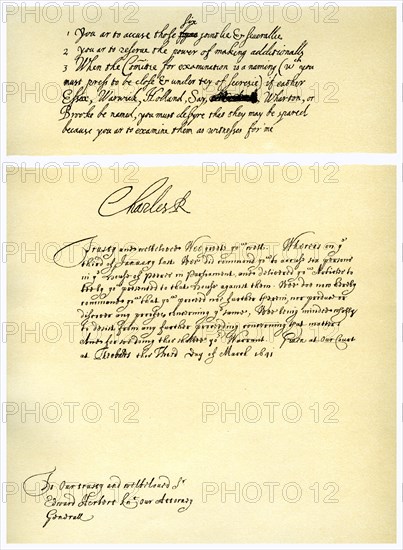 six
1 You ar to accuse those joinslie & seuerallie
2 you ar to reserue the power of making additionalls
3 When the Comitie for examination is a naming (wch you
must press to be close & under tey of secresie) if eather
Essex, Warwick, Holland, Say, Wharton, or
Brooke be named, you must desyre that they may be spared
because you ar to examine them as witneses for me
Charles R
Trusty and welbeloued Wee greete yo well. Whereas in ye
third of January last Wee did command yo to accuse six persons
in ye house of peeres in Parliament, and deliuered yo Articles to
bee by yo presented to that House against them. Wee doe now hereby
commande yo that yo proceed noe further therein, nor produce or
discouer any proofes concerning ye same, Wee being minded wholly
to desist from any further proceeding concerning that matter.
And for soe doing this shalbe yor Warrant. Given at Our Court
at Theobalds this Third Day of March 1641
To Our trusty and welbeloued Sr
Edward Herbert Knt our Attorney
Generall
PHOTO 12